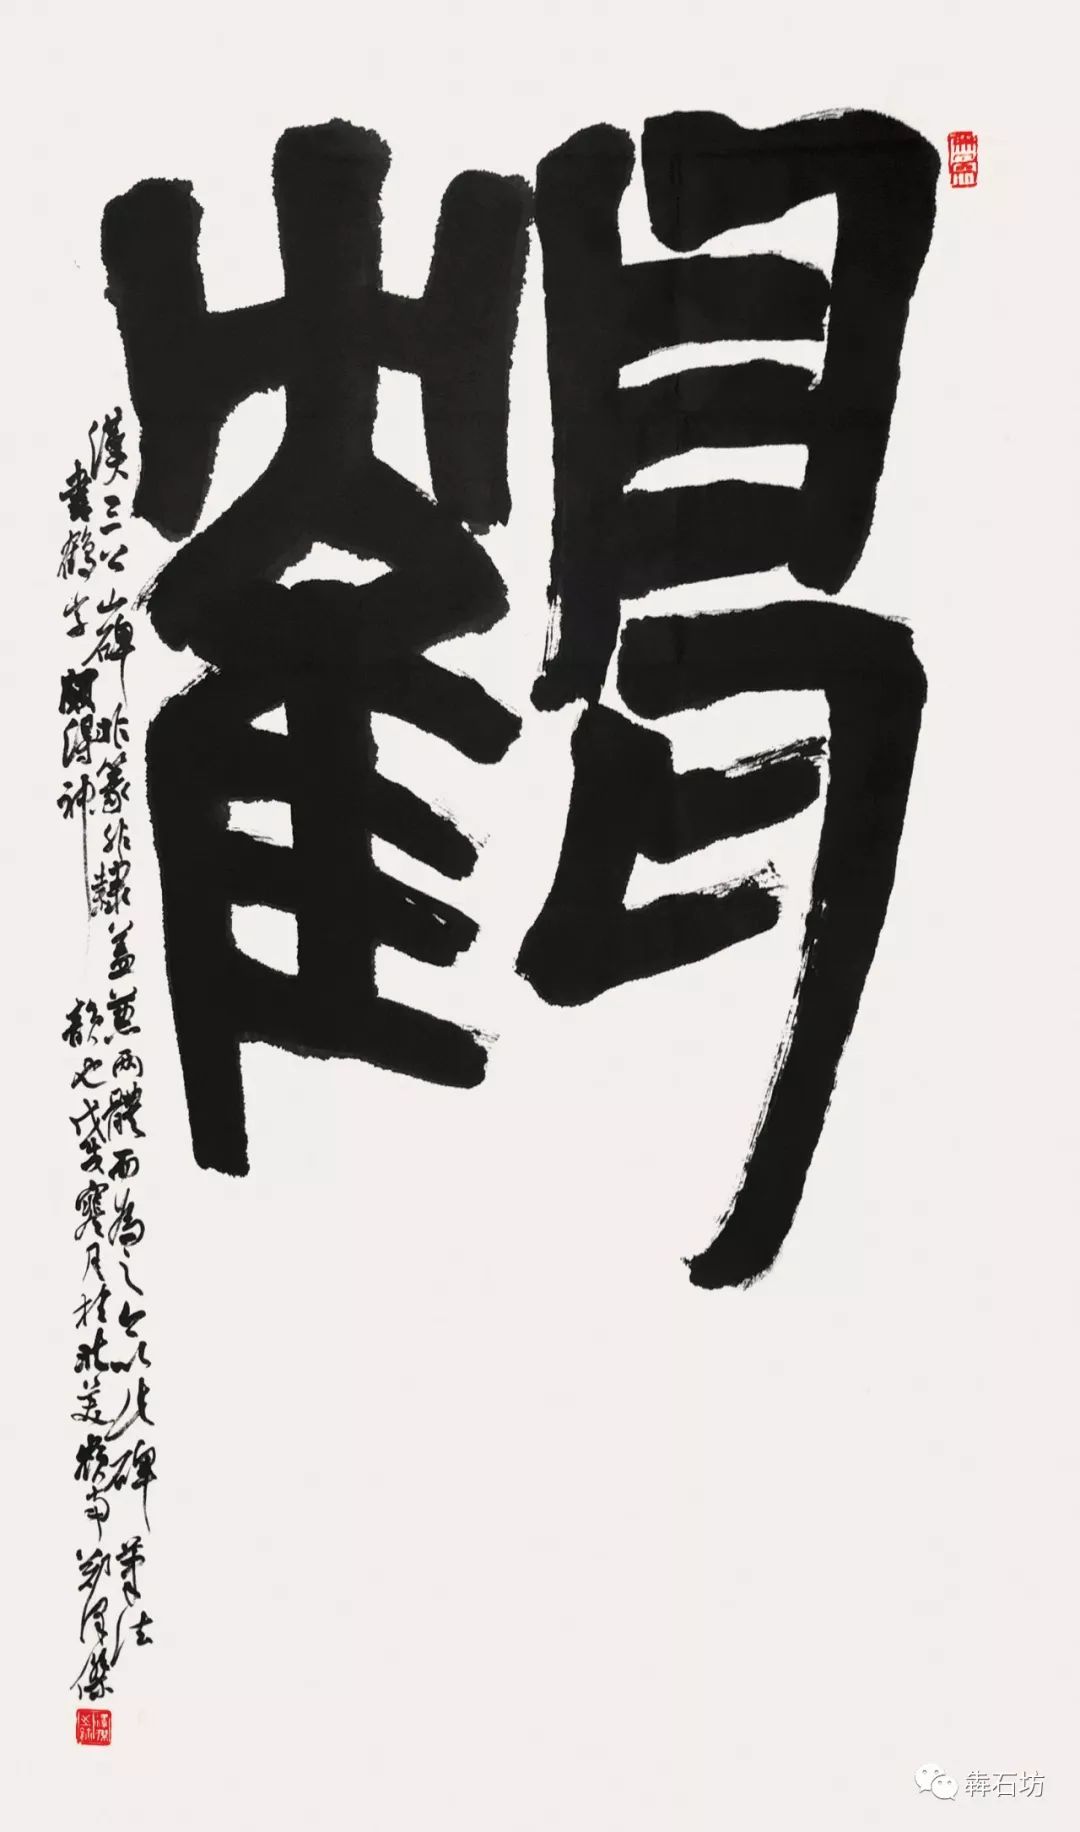 鶴
漢三公山碑非篆非隸蓋兼兩體而為之今以此碑筆法
書鶴字頗得神韻也戊戌寒月於北美嶺南鄭澤傑
犇石坊